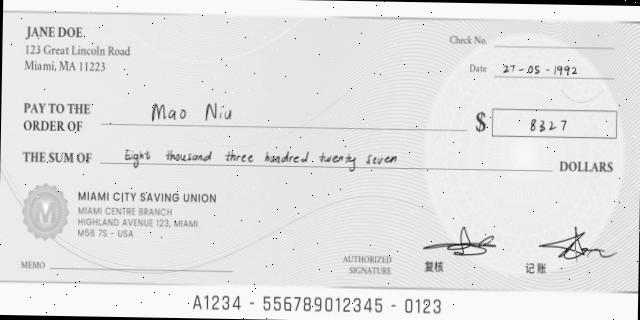 JANE DOE.
123 Great Lincoln Road
Miami, MA 11223
Check No.
Date 27-05-1992
PAY TO THE
ORDER OF Mao Niu
$ 8327
THE SUM OF Eight thousand three hundred twenty seven DOLLARS
MIAMI CITY SAVING UNION
MIAMI CENTRE BRANCH
HIGHLAND AVENUE 123, MIAMI
M56 7S - USA
M
MEMO
AUTHORIZED
SIGNATURE
复核
记账
A1234 - 556789012345 - 0123